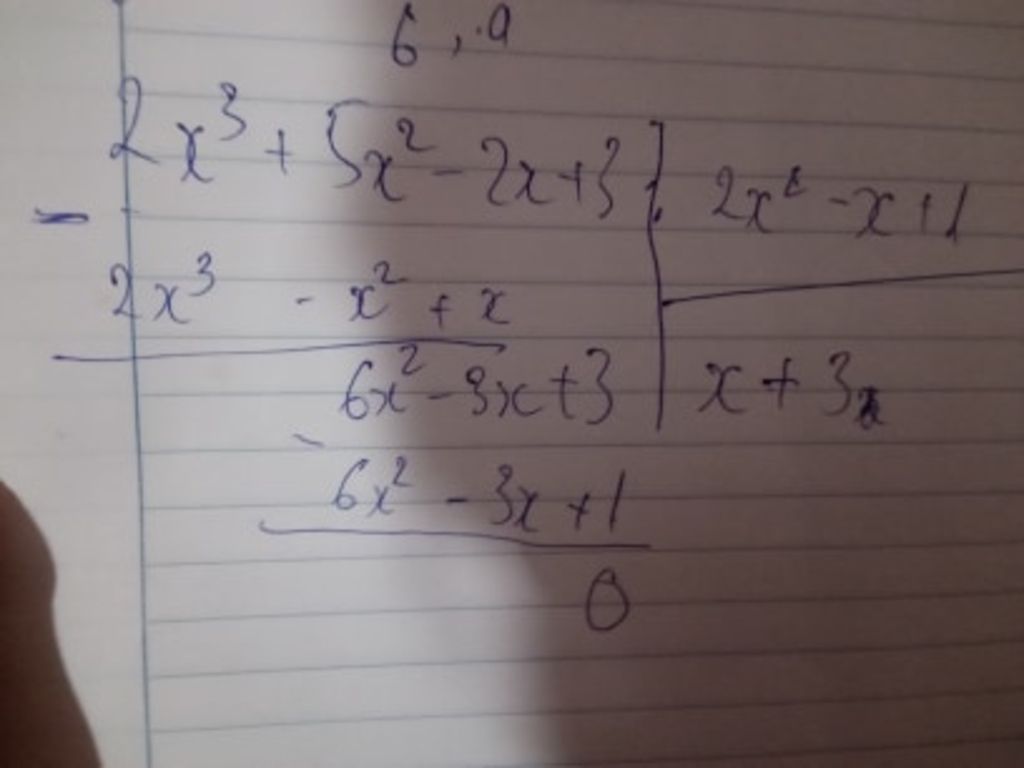 6, .a
2x³ + 5x² - 2x + 3 : 2x² - x + 1
-
2x³ - x² + x
6x² - 3x + 3 x + 3
-
6x² - 3x + 1
0